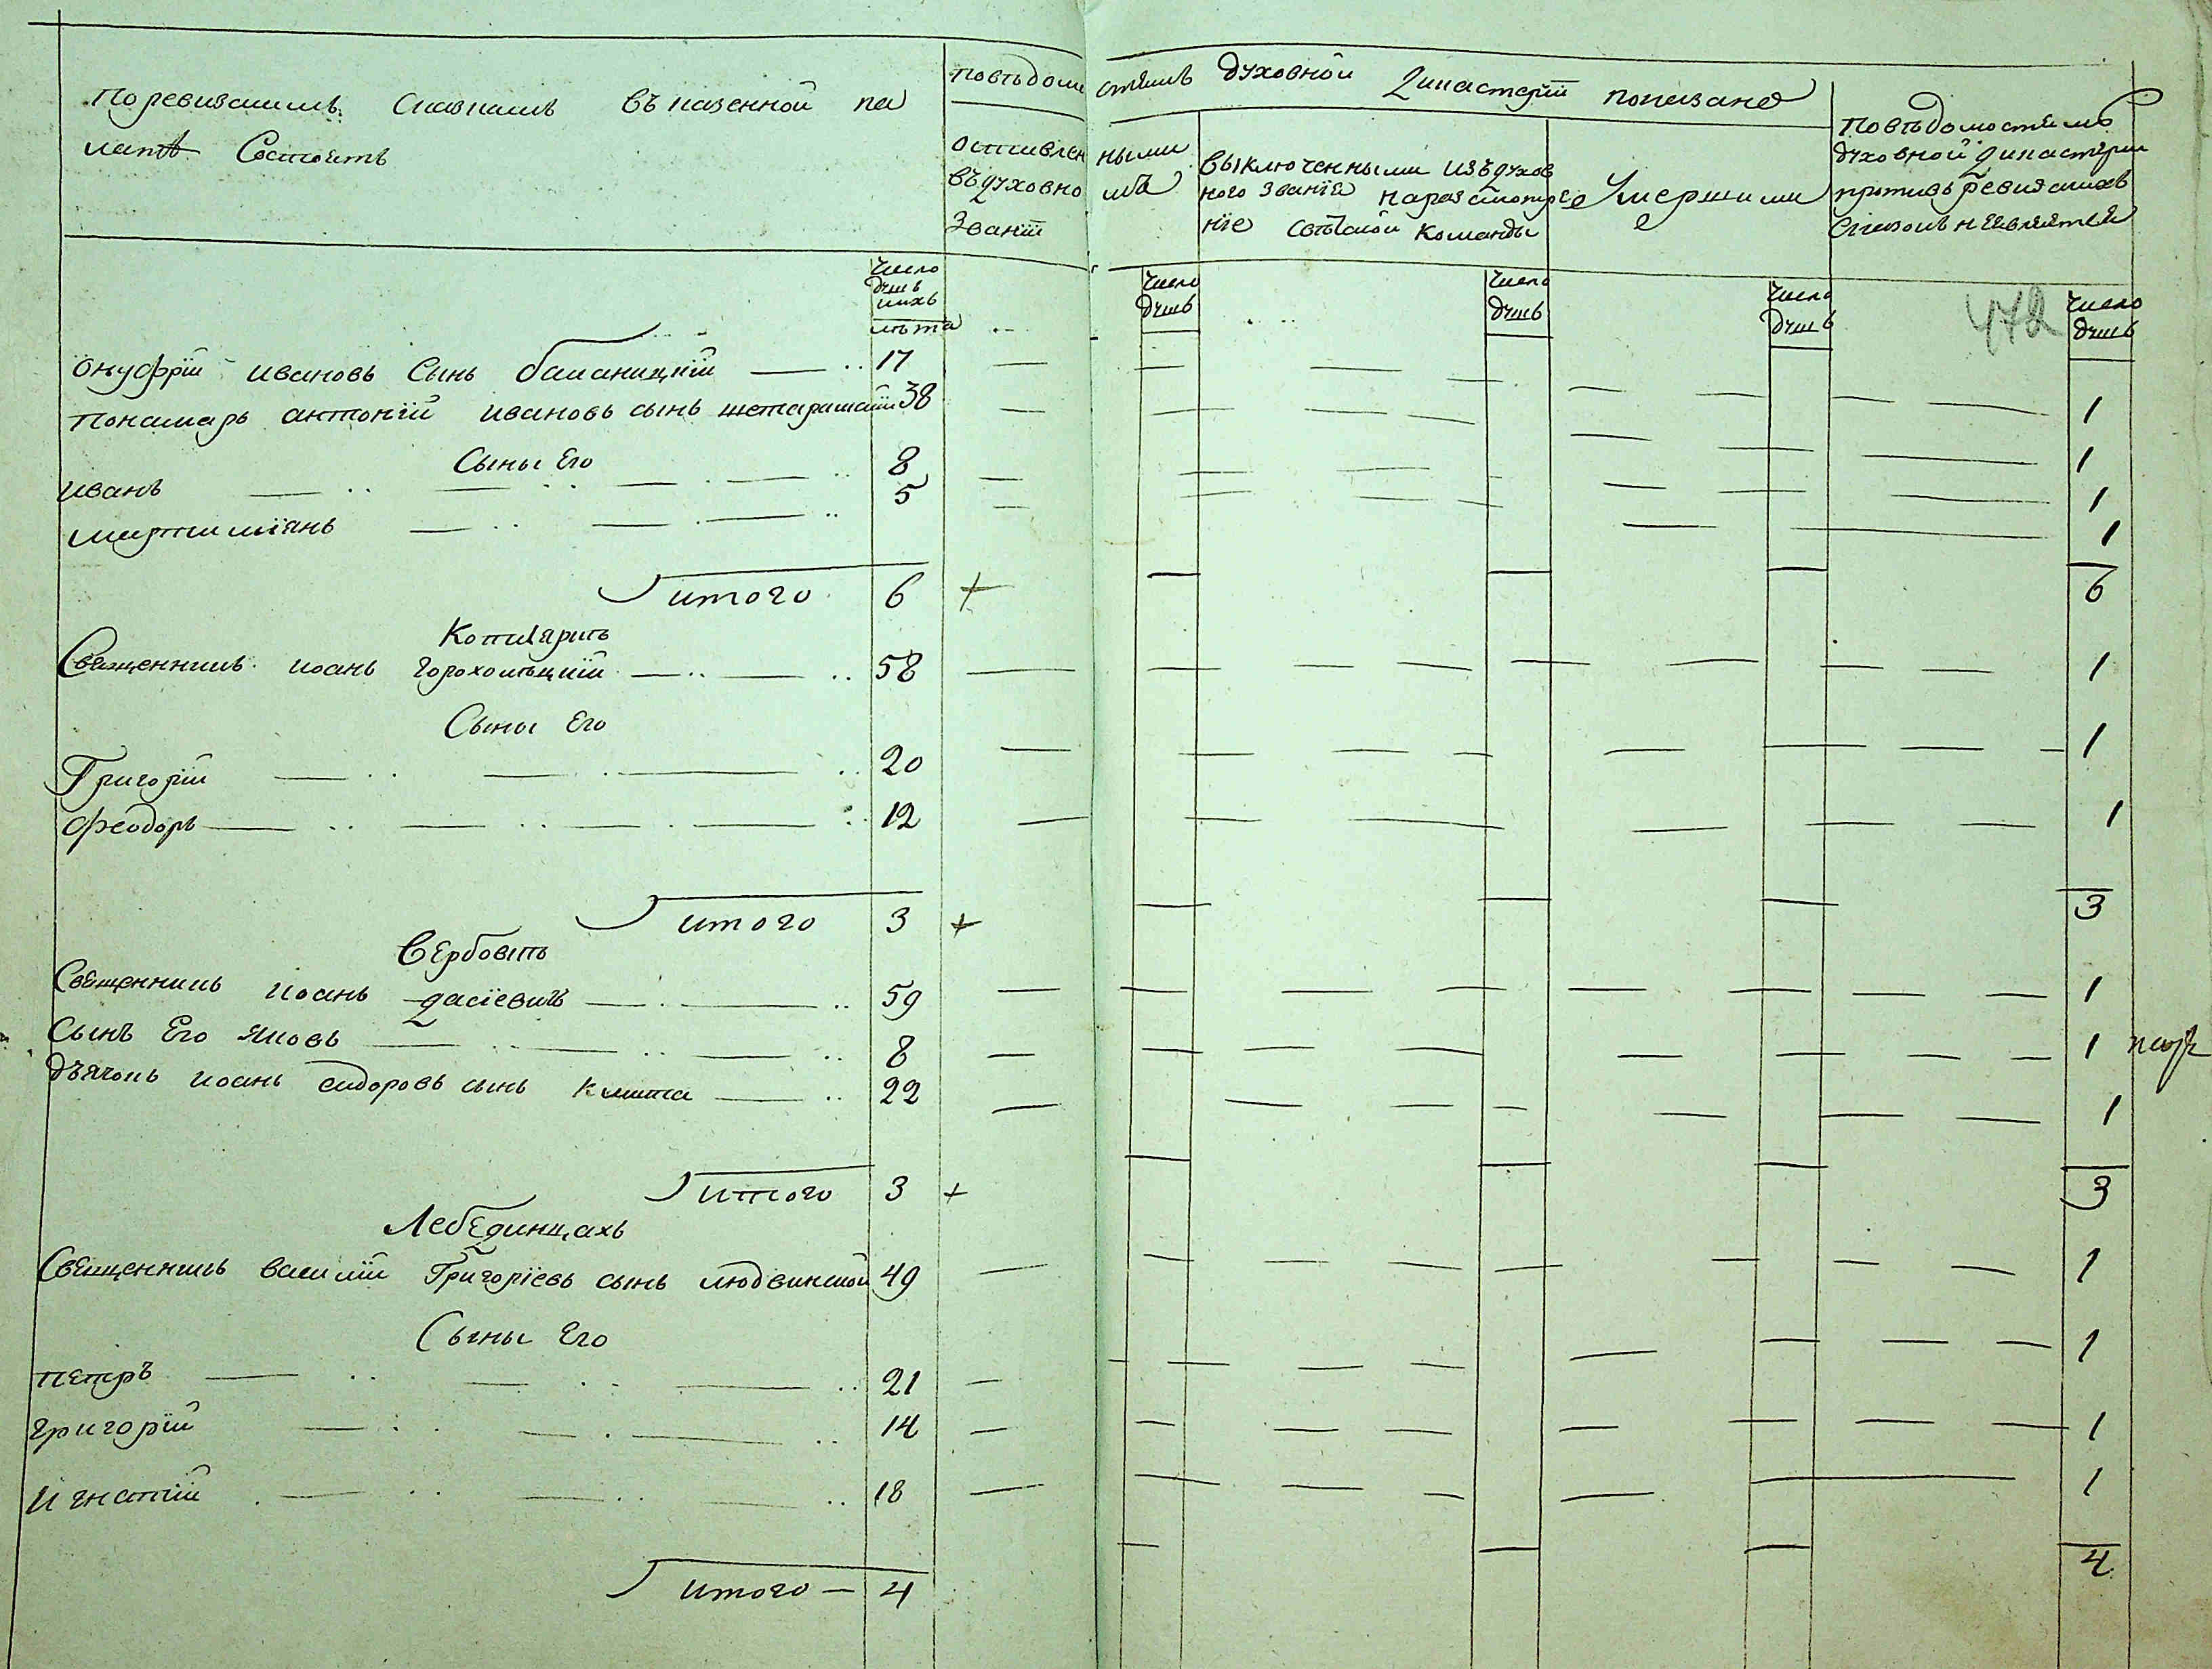 Поревизскимъ Сказкамъ въ казенной па
латѣ Состоитъ
Повѣдомостямъ духовной дикастерїи показано
оставленными
въдуховномъ
званїи
выключенными изъ духов
ного званїя наразсмотре
нїе свѣтской команды
Умершими
Повѣдомостямъ
духовной дикастерїи
противъ ревизскихъ
сказокъ неявляется
Число
душъ
ихъ
лѣта
Число
душъ
Число
душъ
Число
душъ
472
Число
душъ
онуфрїй ивановъ Сынъ 17
Понамарь антонїй ивановъ сынъ 38 1
Сыны Его 1
иванъ 8 1
5 1
итого 6 + 6
Священникъ иоанъ 58 1
Сыны Его
Григорїй 20 1
Феодоръ 12 1
итого 3 + 3
Вербовпѣ
Священникъ иоанъ дасїевичъ 59 1
Сынъ Его Яковъ 8 1
дьячокъ иоанъ сидоровъ сынъ 22 1
итого 3 + 3
Лебединцахъ
Священникъ василїй Григорїевъ сынъ людвинской 49 1
Сыны Его
петръ 21 1
григорїй 14 1
Игнатїй 18 1
итого 4 4